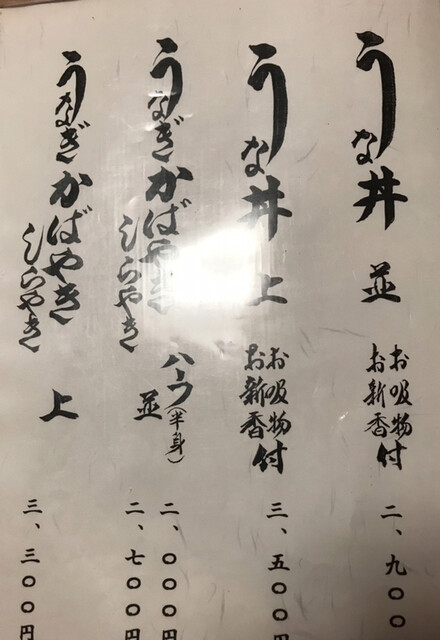 うな丼 並 お吸物 お新香 付 二、九〇〇
うな丼 上 お吸物 お新香 付 三、五〇〇円
うなぎ かばやき ハーフ(半身) 二、〇〇〇円
しらやき 並 二、七〇〇円
うなぎ かばやき
しらやき 上 三、三〇〇円